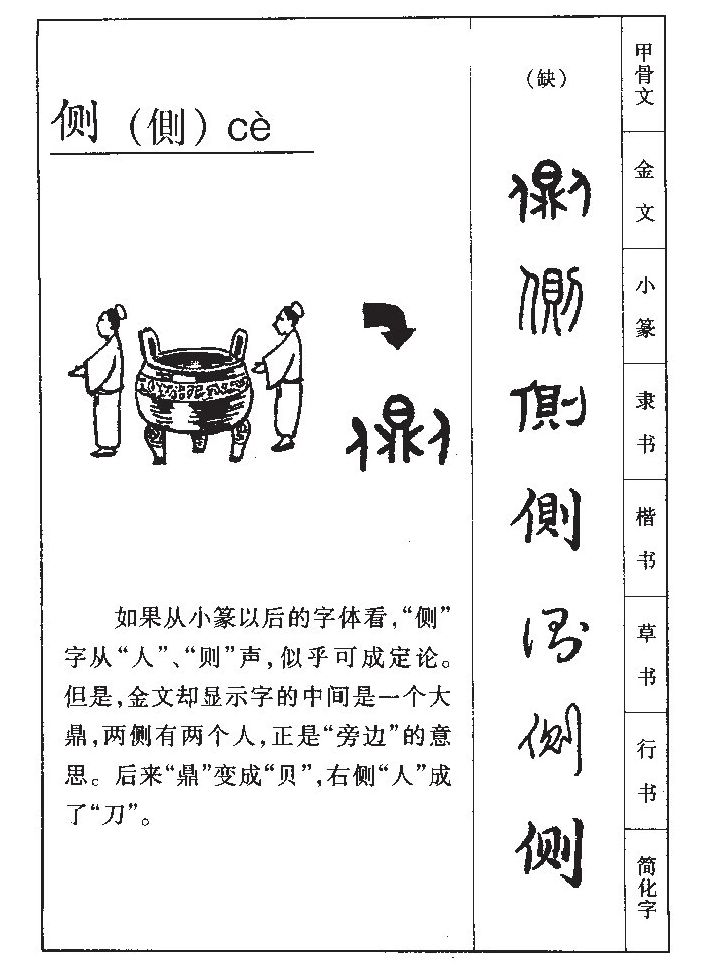 侧（側）cè
如果从小篆以后的字体看，“侧”
字从“人”、“则”声，似乎可成定论。
但是，金文却显示字的中间是一个大
鼎，两侧有两个人，正是“旁边”的意
思。后来“鼎”变成“贝”，右侧“人”成
了“刀”。
（缺）
側
側
側
側
侧
甲骨文
金文
小篆
隶书
楷书
草书
行书
简化字